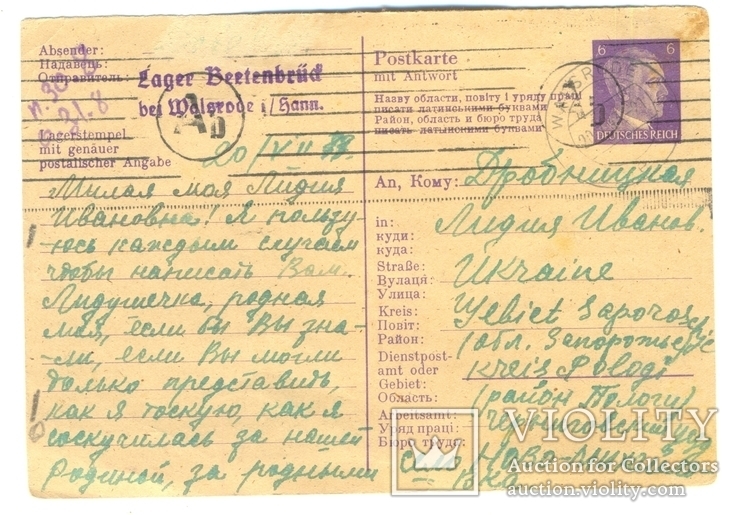 Absender:
Надавець:
Отправитель:
Lager Beetenbrück
bei Walsrode i/Hann.
Lagerstempel
mit genauer
postalischer Angabe
A
D
20/VII
Милая моя Лидия
Ивановна! Я пользу-
юсь каждым случаем
чтобы написать Вам.
Лидушечка, родная
моя, если бы Вы зна-
ли, если Вы могли
только представить,
как я тоскую, как я
соскучилась за нашей
Родиной, за родными
Postkarte
mit Antwort
Назву области, повіту і уряду праці
писати латинськими буквами
Район, область и бюро труда
писать латынскими буквами
6 6
DEUTSCHES REICH
WALSRODE
An, Кому: Дробницкая
in: Лидия Иванов.
куди:
куда:
Straße: Ukraine
Вулаця:
Улица:
Kreis: Gebiet Saporos
Повіт:
Район: (обл. Запорожье
Dienstpost-
amt oder kreis Pologi
Gebiet:
Область: (район Пологи)
Arbeitsamt: Черниговский
Уряд праці:
Бюро труда:
VIOLITY
Auction for Collectors
auction.violity.com